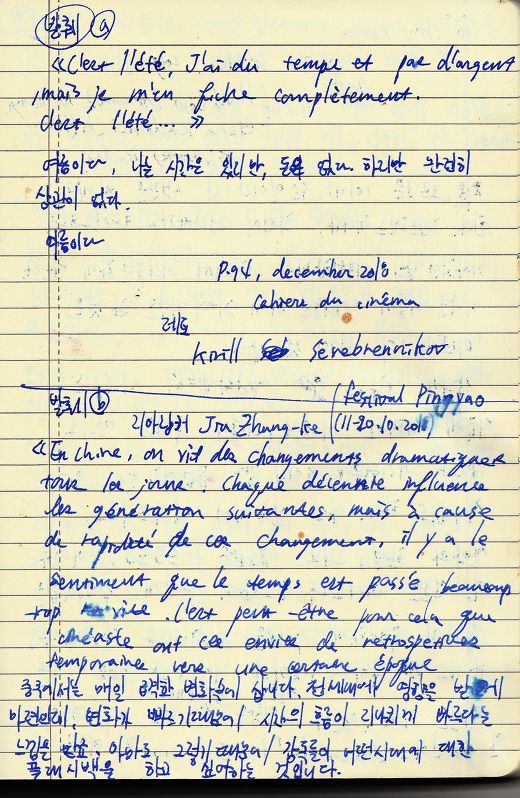 발췌 ⓐ
«C'est l'été, J'ai du temps et pas d'argent
, mais je m'en fiche complètement.
C'est l'été... »
여름이다, 나는 시간은 있지만, 돈은 없다. 하지만 완전히
상관이 없다.
여름이다
P.94, december 2018
Cahiers du cinéma
레토
Kirill Serebrennikov
발췌 ⓑ
festival Pingyao
Jia Zhang-ke (11-20.10.2018)
«En chine, on vit des changements dramatiques
tous les jours. Chaque décennie influence
les génération suivantes, mais à cause
de rapidité de ce changement, il y a le
sentiment que le temps est passé beaucoup
trop vite. C'est peut-être pour cela que
cinéaste ont ces envies de retrospectives
temporaires vers une certaine époque
중국에서는 매일 급격한 변화 속에 삽니다. 전세대에 영향을 받
변화가 빠르기 때문에 시간의 흐름이 지나치게 빠르다는
느낌을 아마도 그렇기 때문에 감독들이 어떤 시대에 대한
플래시백을 하고 싶어하는 것입니다.